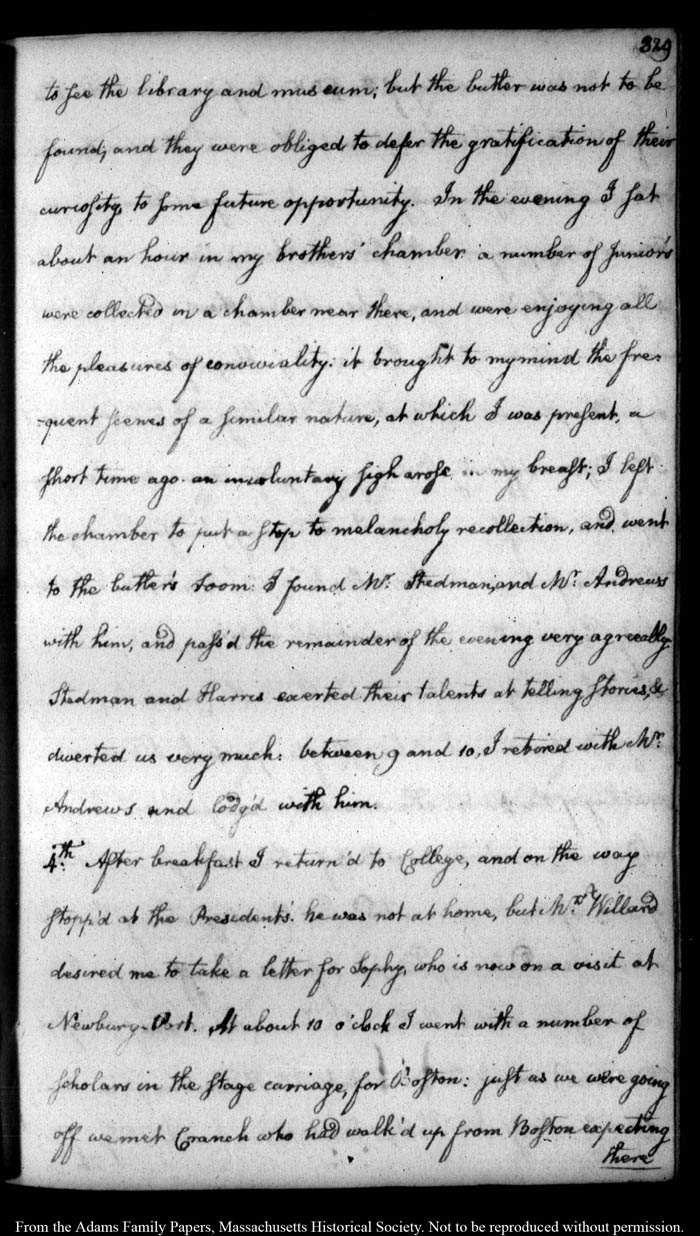 329
to see the library and museum; but the butler was not to be
found, and they were obliged to defer the gratification of their
curiosity, to some future opportunity. In the evening I sat
about an hour in my brothers' chamber a number of Junior's
were collected in a chamber near there, and were enjoying all
the pleasures of conviviality: it brought to my mind the fre-
-quent scenes of a similar nature, at which I was present, a
short time ago. an involuntary sigh arose in my breast; I left
the chamber to put a stop to melancholy recollection, and went
to the butler's room: I found Mr. Stedman, and Mr. Andrews
with him, and pass'd the remainder of the evening very agreeably
Stedman and Harris exerted their talents at telling stories, &
diverted us very much: between 9 and 10, I retired with Mr.
Andrews and lodg'd with him.
4th. After breakfast I return'd to College, and on the way
stopp'd at the Presidents'. he was not at home, but Mrs. Willard
desired me to take a letter for Sophy, who is now on a visit at
Newbury-Port. At about 10 o'clock I went with a number of
scholars in the stage carriage, for Boston: just as we were going
off we met Cranch who had walk'd up from Boston expecting
there
From the Adams Family Papers, Massachusetts Historical Society. Not to be reproduced without permission.